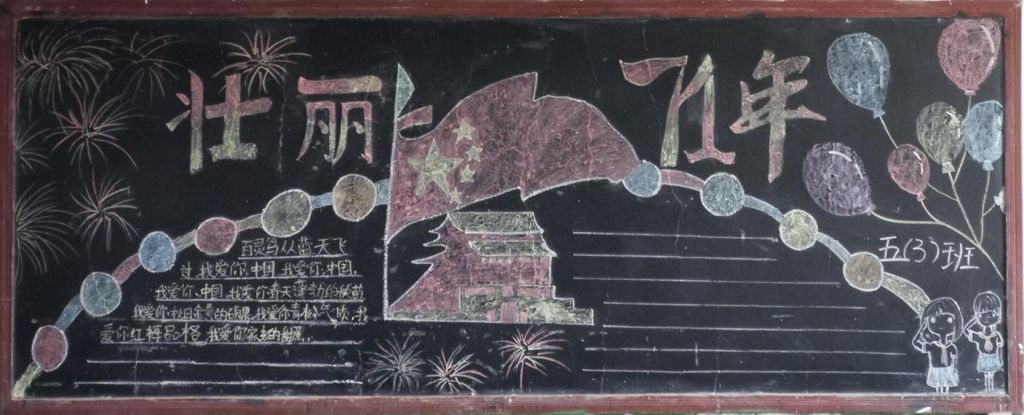 壮丽71年
百灵鸟从蓝天飞
过,我爱你,中国,我爱你,中国,
我爱你,中国,我爱你春天蓬勃的秧苗
我爱你,秋日金黄的硕果,我爱你青松气质,我
爱你红梅品格,我爱你家乡的甜蔗,
五(3)班